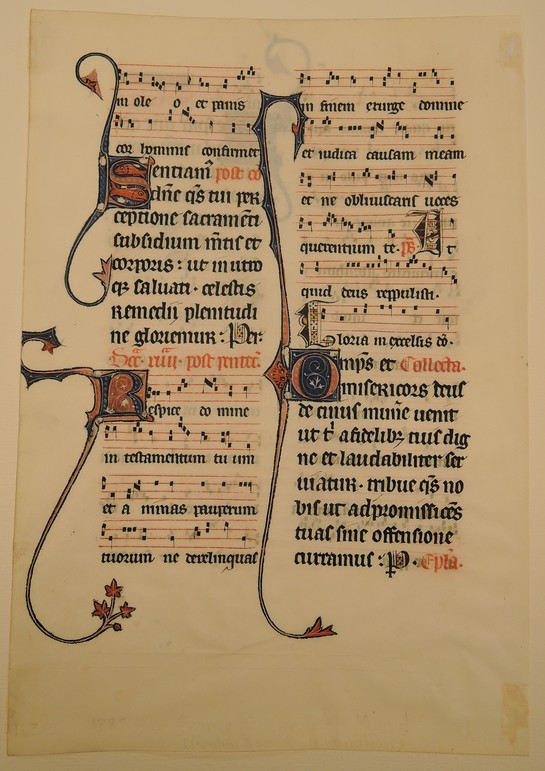 in ole o et panis
cor hominis confirmet
Sentiam̄ post cō
dn̄e qs̄ tui per
ceptione sacramēti
subsidium mētis et
corporis : ut in utro
qꝫ saluati · celestis
remedii plenitudi
ne gloriemur : Per·
post pentec̄·
Respice do mine
in testamentum tu um
et a nimas pauperum
tuorum ne derelinquas
in finem exurge domine
et iudica causam meam
et ne obliuiscaris uoces
querentium te · ps̄· Vt
quid deus reppulisti·
Gloria in excelsis dō·
Omp̄s et Collecta·
misericors deus
de cuius mun̄e uenit
ut tꝰ a fidelibꝫ tuis dig
ne et laudabiliter ser
uiatur · tribue qs̄ no
bis ut ad promissiōēs
tuas sine offensione
curramus : P· Epl̄a·